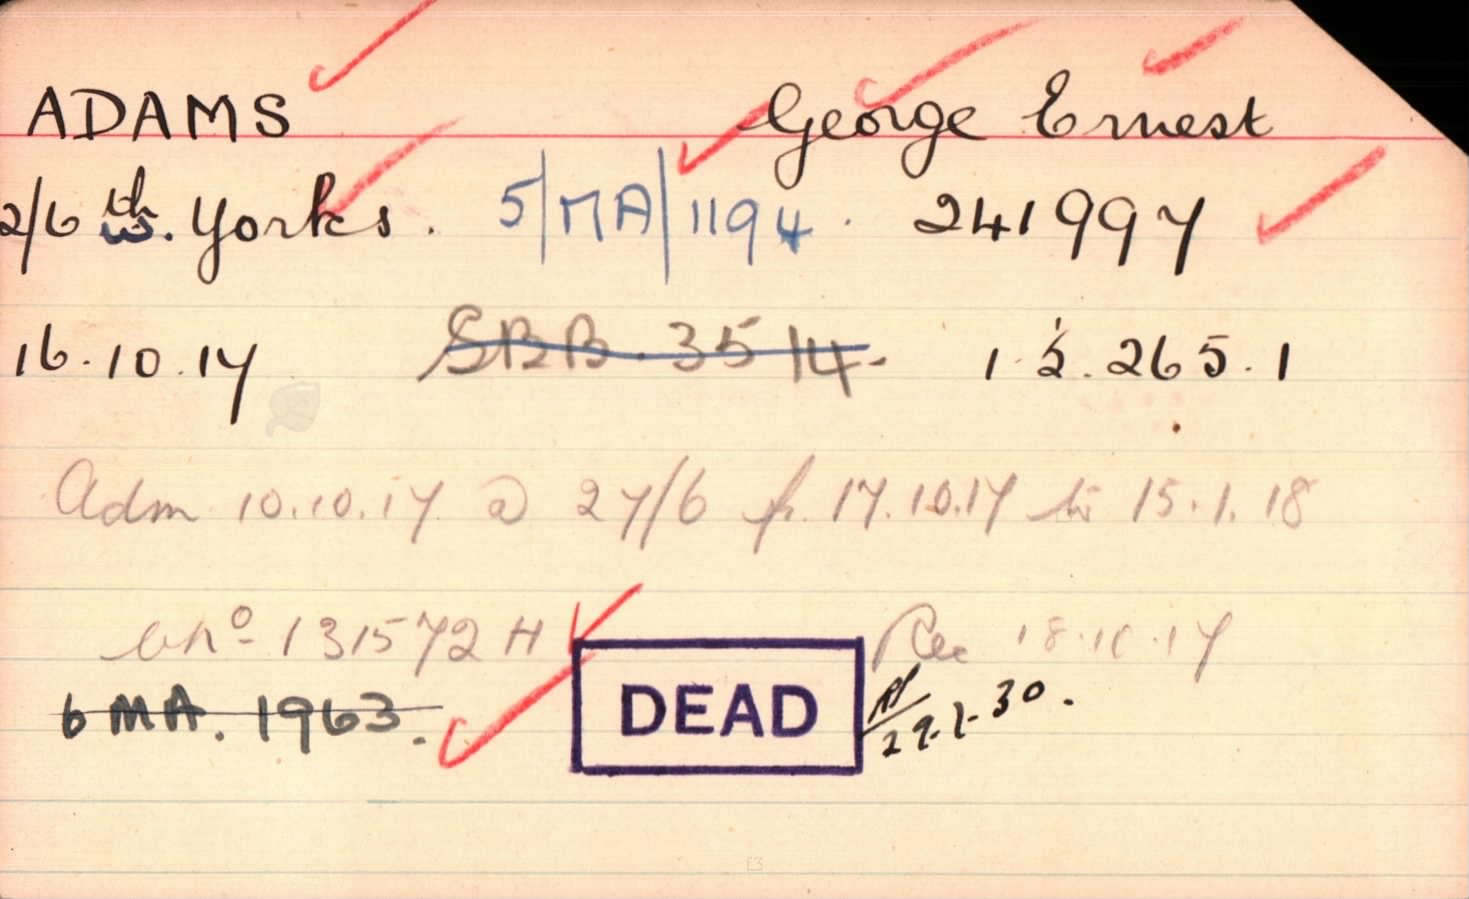 ADAMS George Ernest
2/6 th W. Yorks. 5/MA/1194. 241997
16.10.17 SBB.3514. 1.2.265.1
Adm 10.10.17 @ 27/6 fr. 17.10.17 to 15.1.18
No 131572 H Rec 18.10.17
6 MA. 1963. DEAD 29.1.30.